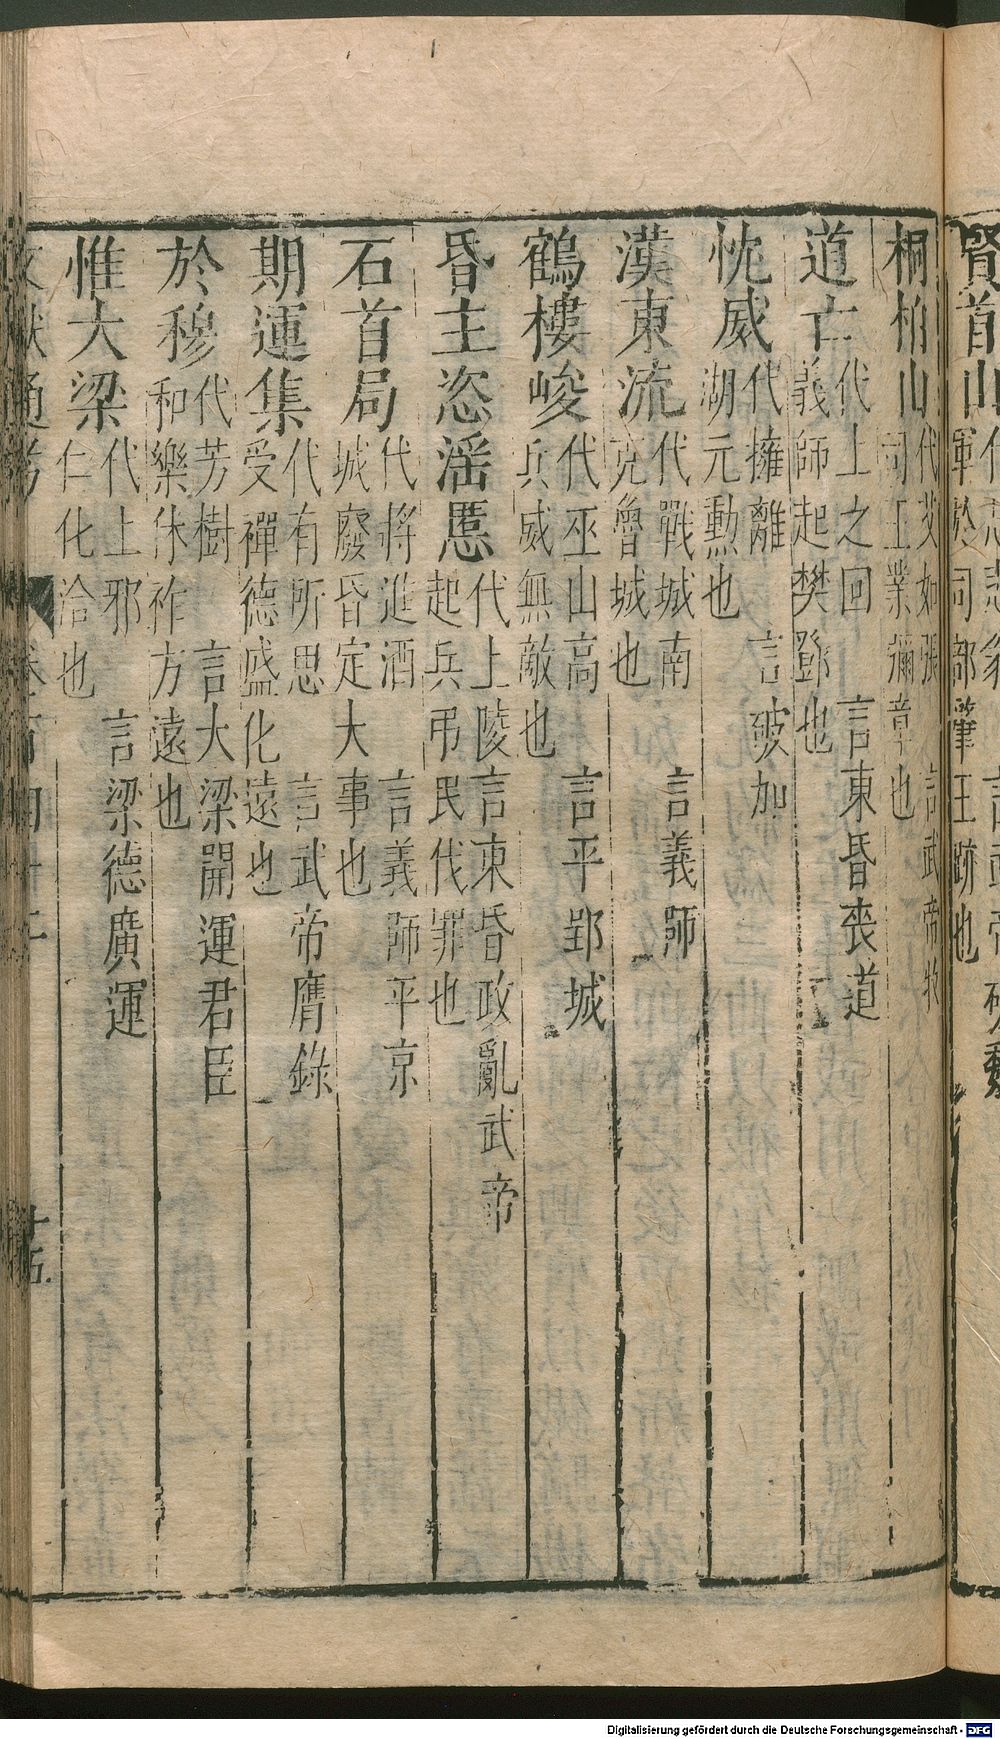 賢首山
軍於司部肇王跡也
桐柏山 代艾如張 言武帝牧
司王業彌章也
道亡 代上之回 言東昏喪道
義師起樊鄧也
忱威 代擁離 言破加
湖元勲也
漢東流 代戰城南 言義師
克魯城也
鶴樓峻 代巫山高 言平郢城
兵威無敵也
昏主恣滛慝 代上陵 言東昏政亂武帝
起兵弔民伐罪也
石首局 代將進酒 言義師平京
城廢昏定大事也
期運集 代有所思 言武帝膺錄
受禪德盛化遠也
於穆 代芳樹 言大梁開運君臣
和樂休祚方遠也
惟大梁 代上邪 言梁德廣運
仁化洽也
通考
十五
Digitalisierung gefördert durch die Deutsche Forschungsgemeinschaft - DFG